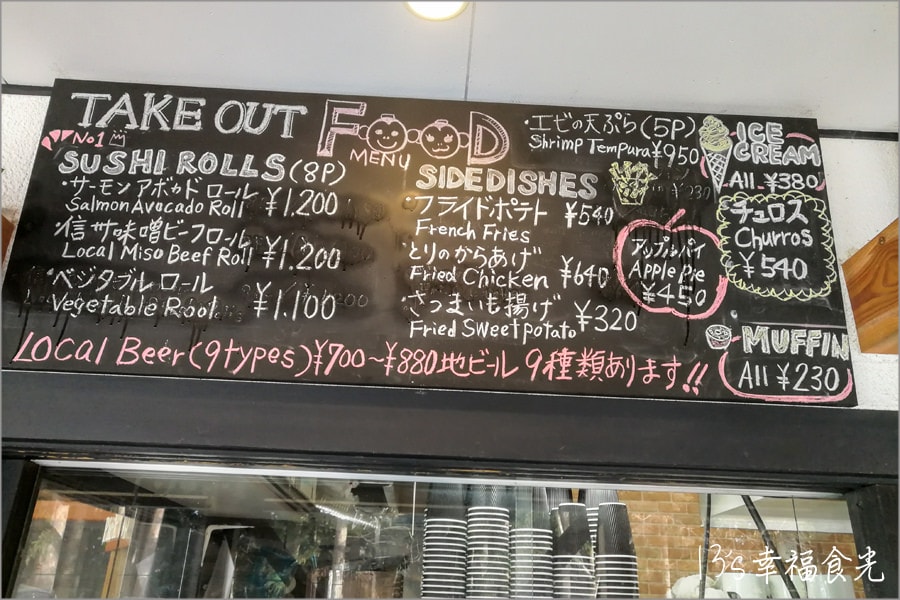 TAKE OUT FOOD
MENU
No1
SUSHI ROLLS (8P)
・サーモンアボカドロール
Salmon Avocado Roll ¥1.200
・信州味噌ビーフロール
Local Miso Beef Roll ¥1.200
・ベジタブルロール
Vegetable Rool ¥1.100
SIDE DISHES
・フライドポテト
French Fries ¥540
・とりのからあげ
Fried Chicken ¥640
・さつまいも揚げ
Fried Sweet potato ¥320
・エビの天ぷら (5P)
Shrimp Tempura ¥950
アップルパイ
Apple Pie
¥450
ICE CREAM
All ¥380
チュロス
Churros
¥540
MUFFIN
All ¥230
LOCAL Beer (9types) ¥700～¥880 地ビール 9種類あります!!
13's幸福食光